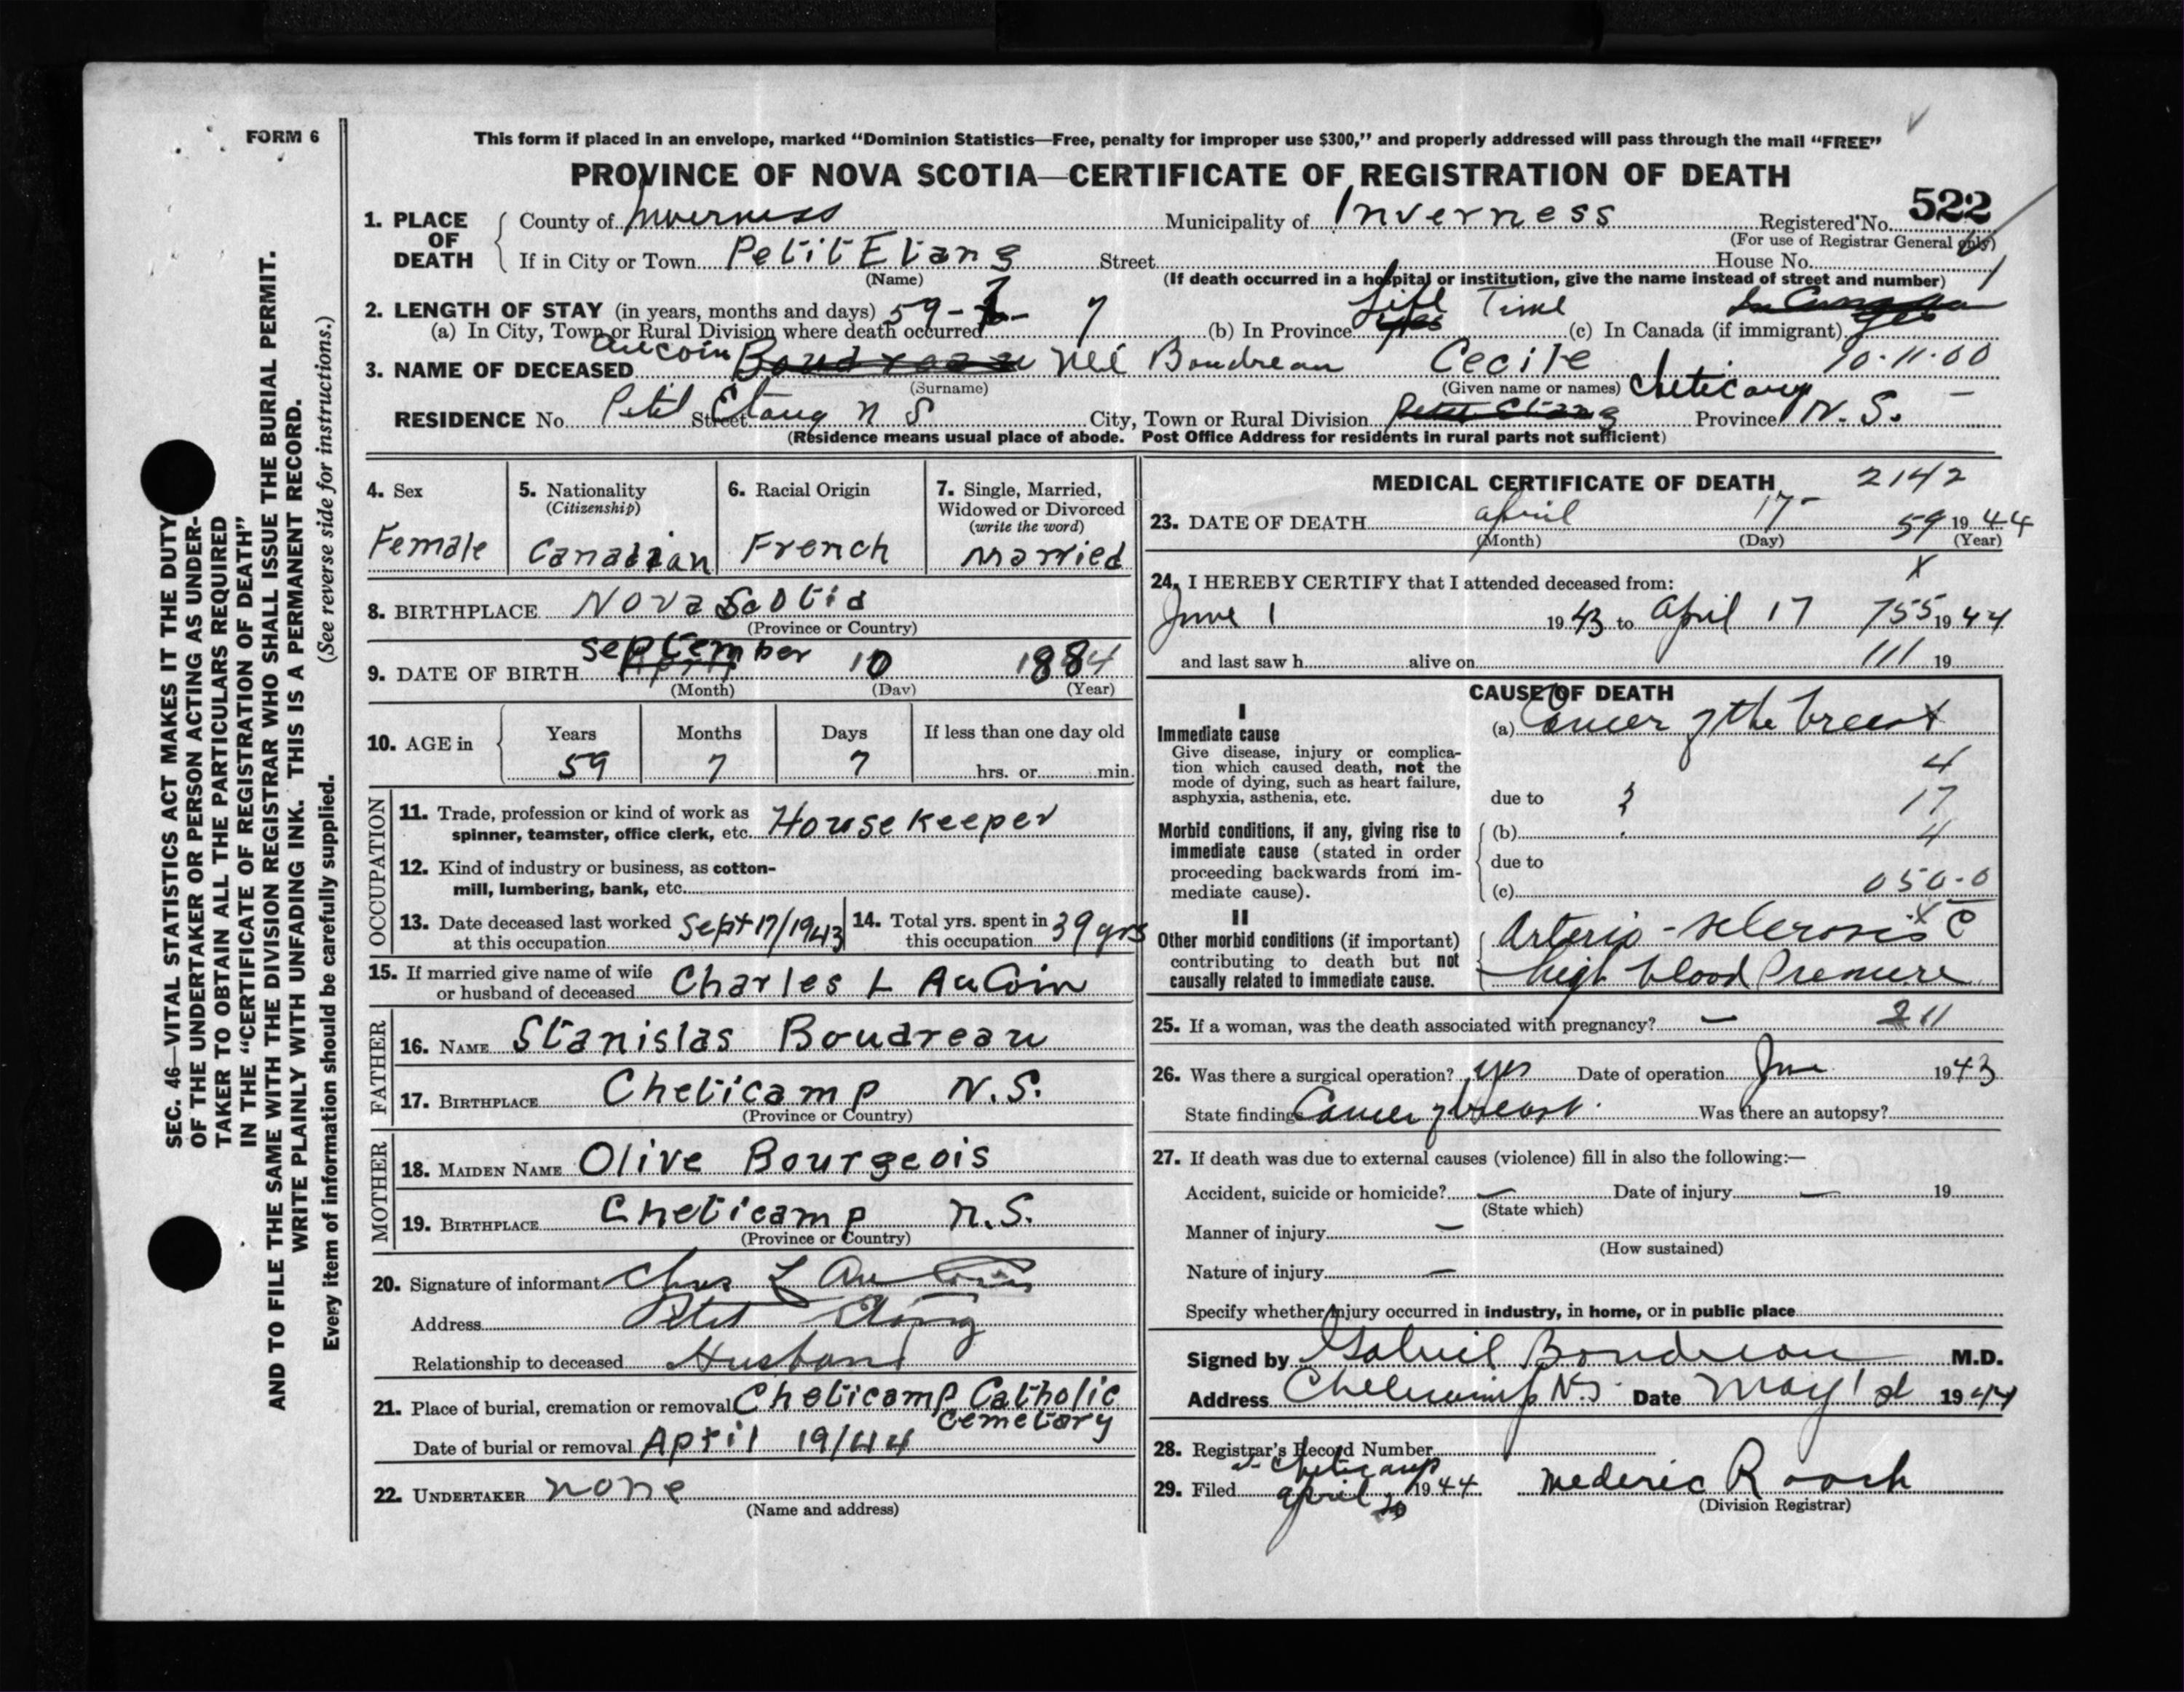 FORM 6
This form if placed in an envelope, marked “Dominion Statistics—Free, penalty for improper use $300,” and properly addressed will pass through the mail “FREE”
PROVINCE OF NOVA SCOTIA—CERTIFICATE OF REGISTRATION OF DEATH
522
1. PLACE OF DEATH County of Inverness Municipality of Inverness Registered No.
(For use of Registrar General only)
If in City or Town Petit Etang Street House No.
(Name) (If death occurred in a hospital or institution, give the name instead of street and number)
2. LENGTH OF STAY (in years, months and days) 59-7-7 Life Time
(a) In City, Town or Rural Division where death occurred (b) In Province yes (c) In Canada (if immigrant) yes
3. NAME OF DECEASED Aucoin Boudreau Neé Boudreau Cecile 10-11-00
(Surname) (Given name or names) Cheticamp
RESIDENCE No. Petit Street Etang N S City, Town or Rural Division Petit Etang Province N.S.
(Residence means usual place of abode. Post Office Address for residents in rural parts not sufficient)
4. Sex
Female
5. Nationality
(Citizenship)
Canadian
6. Racial Origin
French
7. Single, Married,
Widowed or Divorced
(write the word)
Married
8. BIRTHPLACE Nova Scotia
(Province or Country)
9. DATE OF BIRTH September April 10 1884
(Month) (Day) (Year)
10. AGE in Years Months Days If less than one day old
59 7 7 hrs. or min.
OCCUPATION
11. Trade, profession or kind of work as
spinner, teamster, office clerk, etc. House Keeper
12. Kind of industry or business, as cotton-
mill, lumbering, bank, etc.
13. Date deceased last worked
at this occupation Sept 17/1943
14. Total yrs. spent in
this occupation 39 yrs
15. If married give name of wife
or husband of deceased Charles L AuCoin
FATHER
16. NAME Stanislas Boudreau
17. BIRTHPLACE Cheticamp N.S.
(Province or Country)
MOTHER
18. MAIDEN NAME Olive Bourgeois
19. BIRTHPLACE Cheticamp N.S.
(Province or Country)
20. Signature of informant Chas L AuCoin
Address Petit Etang
Relationship to deceased Husband
21. Place of burial, cremation or removal Cheticamp Catholic
Cemetary
Date of burial or removal April 19/44
22. UNDERTAKER none
(Name and address)
MEDICAL CERTIFICATE OF DEATH 2142
23. DATE OF DEATH April 17 59 1944
(Month) (Day) (Year)
24. I HEREBY CERTIFY that I attended deceased from: X
June 1 1943 to April 17 755 1944
and last saw h alive on 111 19
CAUSE OF DEATH
I
Immediate cause
Give disease, injury or complica-
tion which caused death, not the
mode of dying, such as heart failure,
asphyxia, asthenia, etc.
(a) Cancer of the breast
4
due to ? 17
Morbid conditions, if any, giving rise to
immediate cause (stated in order
proceeding backwards from im-
mediate cause).
(b) 4
due to
(c) 050-0
II
Other morbid conditions (if important)
contributing to death but not
causally related to immediate cause.
Arterio-sclerosis c
high blood Pressure
25. If a woman, was the death associated with pregnancy? — 211
26. Was there a surgical operation? yes Date of operation June 1943
State findings Cancer of breast. Was there an autopsy?
27. If death was due to external causes (violence) fill in also the following:—
Accident, suicide or homicide? — Date of injury — 19
(State which)
Manner of injury —
(How sustained)
Nature of injury —
Specify whether injury occurred in industry, in home, or in public place
Signed by Gabriel Boudreau M.D.
Address Cheticamp N.S. Date May 1944
28. Registrar's Record Number
Cheticamp
29. Filed April 20 1944 Mederic Roach
(Division Registrar)
SEC. 46—VITAL STATISTICS ACT MAKES IT THE DUTY
OF THE UNDERTAKER OR PERSON ACTING AS UNDER-
TAKER TO OBTAIN ALL THE PARTICULARS REQUIRED
IN THE “CERTIFICATE OF REGISTRATION OF DEATH”
AND TO FILE THE SAME WITH THE DIVISION REGISTRAR WHO SHALL ISSUE THE BURIAL PERMIT.
WRITE PLAINLY WITH UNFADING INK. THIS IS A PERMANENT RECORD.
Every item of information should be carefully supplied. (See reverse side for instructions.)